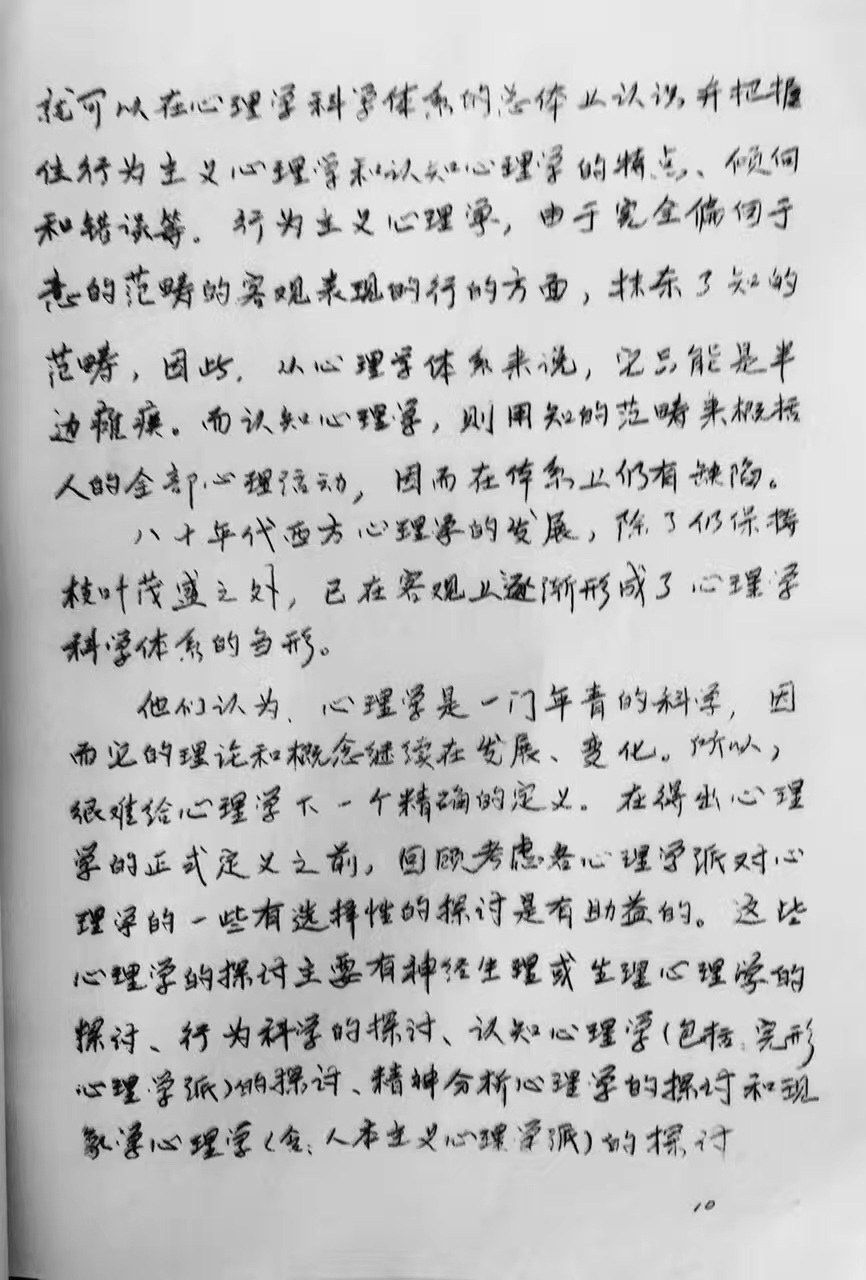 就可以在心理学科学体系的总体上认识并把握
住行为主义心理学和认知心理学的特点、倾向
和错误等。行为主义心理学，由于完全偏向于
意的范畴的客观表现的行的方面，抹杀了知的
范畴，因此，从心理学体系来说，它只能是半
边瘫痪。而认知心理学，则用知的范畴来概括
人的全部心理活动，因而在体系上仍有缺陷。
八十年代西方心理学的发展，除了仍保持
枝叶茂盛之外，已在客观上逐渐形成了心理学
科学体系的刍形。
他们认为，心理学是一门年青的科学，因
而它的理论和概念继续在发展、变化。所以，
很难给心理学下一个精确的定义。在得出心理
学的正式定义之前，回顾考虑各心理学派对心
理学的一些有选择性的探讨是有助益的。这些
心理学的探讨主要有神经生理或生理心理学的
探讨、行为科学的探讨、认知心理学(包括:完形
心理学派)的探讨、精神分析心理学的探讨和现
象学心理学(含:人本主义心理学派)的探讨
10